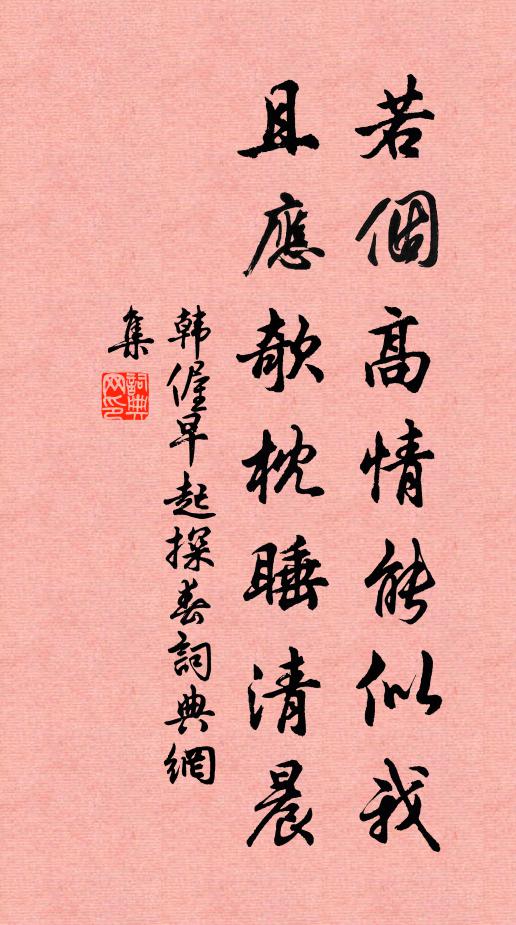 若個高情能似我
且應欹枕睡清晨
韩偓早起探春詞典網
集
詞典
网印